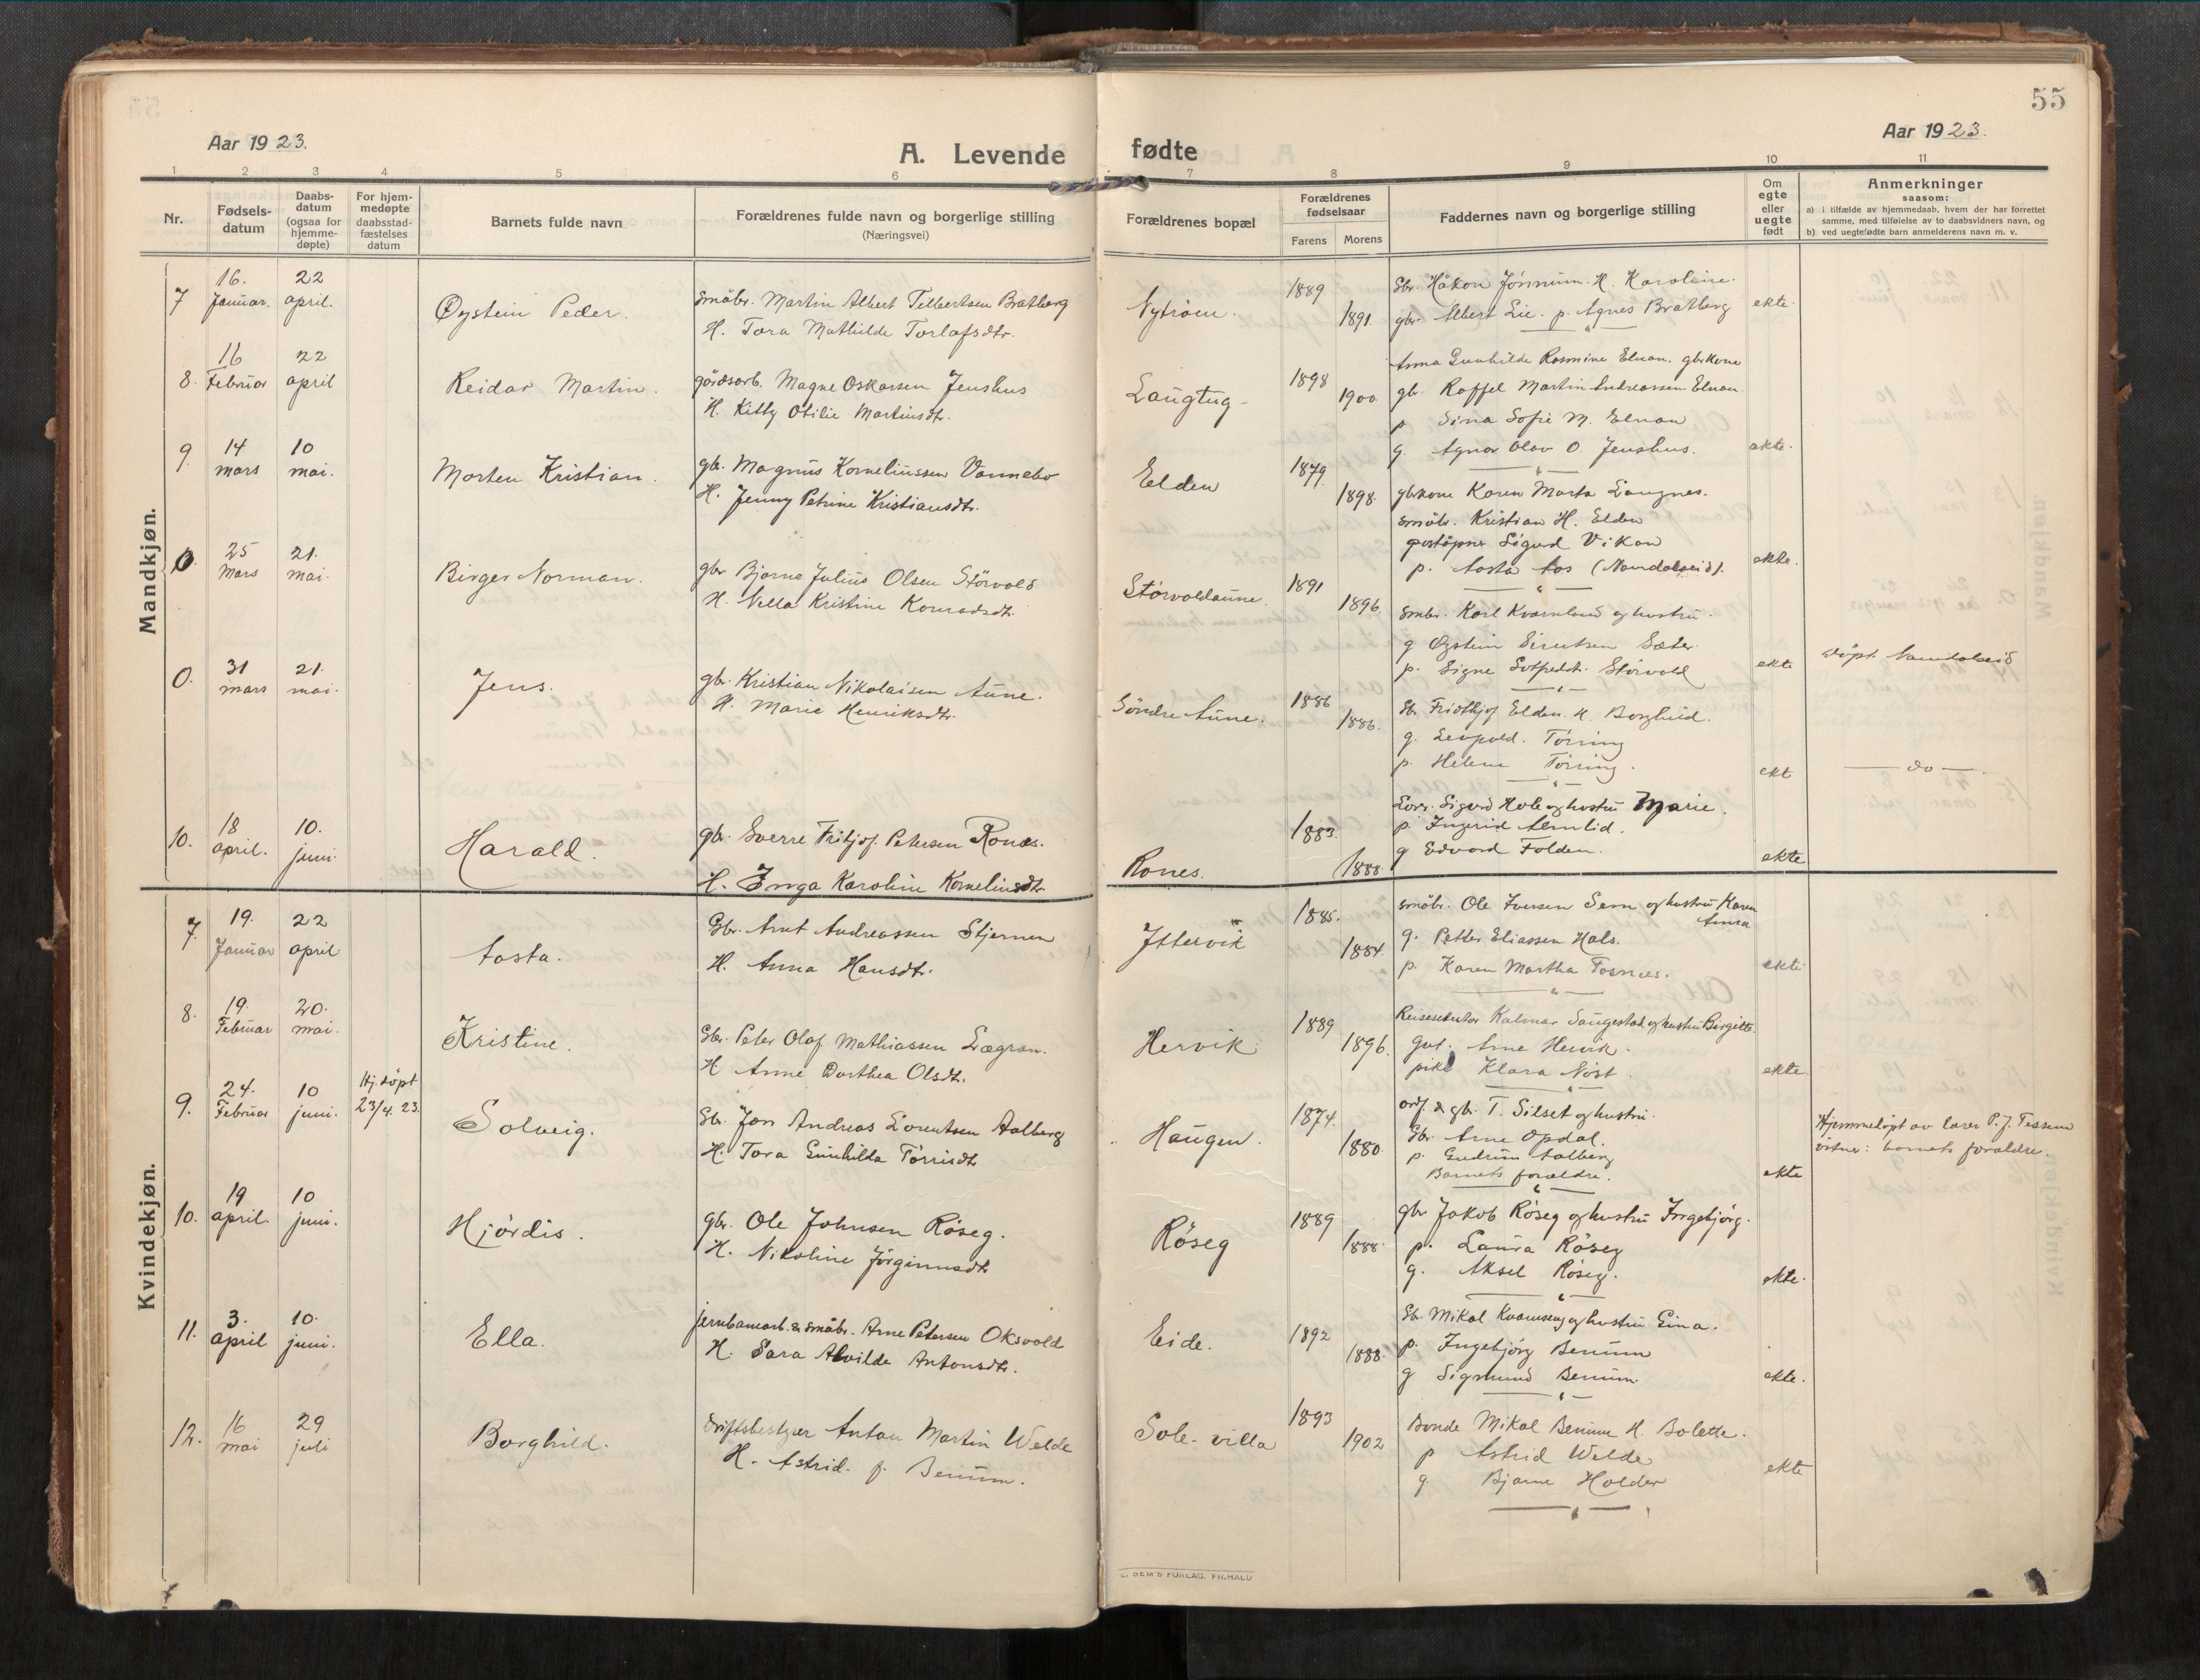 55
Aar 1923.
A. Levende fødte
Aar 1923.
1 2 3 4 5 6 7 8 9 10 11
Nr.
Fødsels-
datum
Daabs-
datum
(ogsaa for
hjemme-
døpte)
For hjem-
medøpte
daabsstad-
fæstelses
datum
Barnets fulde navn
Forældrenes fulde navn og borgerlige stilling
(Næringsvei)
Forældrenes bopæl
Forældrenes
fødselsaar
Farens Morens
Faddernes navn og borgerlige stilling
Om
egte
eller
uegte
født
Anmerkninger
saasom:
a) i tilfælde av hjemmedaab, hvem der har forrettet
samme, med tilføielse av to daabsvidners navn, og
b) ved uegtefødte barn anmelderens navn m. v.
Mandkjøn.
7 16. Januar. 22 april. Øystein Peder.
småbr. Martin Albert Telbertsen Bratberg
H. Tora Mathilde Torlafsdtr.
Nytrøen. 1889 1891.
Gbr. Håkon Jönnum. H. Karoline.
gbr. Albert Lie. p. Agnes Bratberg
ekte.
8. 16 Februar 22 april Reidar Martin.
gårdsarb. Magne Oskarsen Jenshus
H. Kitty Otilie Martinsdtr.
Langtug 1898 1900
Anna Gunhilde Rosmine Elnan. gbrkone
gb. Roffel Martin Andreassen Elnan
p. Sina Sofie M. Elnan
g. Agnar Olav O. Jenshus.
ekte.
9. 14 mars 10 mai. Morten Kristian.
gb. Magnus Korneliussen Vannebo
H. Jenny Petrine Kristiansdtr.
Elden 1879 1898.
gbrkone Karen Marta Langnes.
småbr. Kristian H. Elden
poståpner Sigurd Vikan
p. Aasta Aas (Namdalseid).
ekte.
0. 25 Mars 21. mai. Birger Norman.
gbr Bjarne Julius Olsen Störvold
H. Nella Kristine Konradsdtr.
Størvoldaune. 1891 1896.
småbr. Karl Kvarnland og hustru.
g Øystein Sivertsen Sæter
p. Signe Sotfredsdt. Størvold
ekte
døpt Namdalseid
0. 31 mars 21. mai. Jens.
gbr. Kristian Nikolaisen Aune.
H. Marie Henriksdtr.
Söndre Aune. 1886 1886.
Gb. Fridthjof Elden. H. Borghild.
g. Leopold. Törring
p. Helene Törring.
ekt
do
10. 18 april. 10. juni. Harald.
gbr. Sverre Fritjof. Petersen Ronæs.
H. Inga Karoline Korneliusdtr.
Rones. 1883. 1888
Lærer. Sigurd Hole og hustru Marie.
p. Ingerid Almlid.
g Edvard Folden.
ekte
Kvindekjøn.
7. 19. Januar 22 april Aasta.
Gbr. Arnt Andreassen Stjernen
H. Anna Hansdtr.
Yttervik 1885. 1884.
småbr. Ole Iversen Sem og hustru Karen
Anna
g. Petter Eliassen Hals.
p. Karen Martha Fosnæs.
ekte
8. 19. Februar 20. mai. Kristine.
Gbr. Peter Olaf Mathiassen Lægran.
H Anne Dorthea Olsdtr.
Hervik 1889 1896.
Reisesekretær Kalmar Saugestad og hustru Bergitte.
gut. Arne Hervik.
pike Klara Nöst.
ekte.
9. 24. Februar 10 juni. Hj. döpt 23/4. 23. Solveig.
Gbr. Jon Andreas Lorentsen Aalberg
H. Tora Gunhilda Törrisdtr
Haugen. 1874. 1880
ordf. & gbr. T. Silset og hustru.
Gbr. Arne Opdal.
p. Gudrun Aalberg
Barnets forældre.
ekte
Hjemmedøpt av lærer P. J. Tessem
vitner: barnets forældre.
10. 19 april 10 juni. Hjördis.
gbr. Ole Johnsen Röseg.
H. Nikoline Jörginusdtr
Röseg 1889 1888.
gbr Jakob Röseg og hustru Ingebjörg.
p. Laura Röseg
g. Aksel Röseg.
ekte.
11. 3. april 10. juni. Ella.
jernbanearb. & småbr. Arne Petersen Oksvold
H. Sara Alvilde Antonsdtr.
Eide. 1892 1888.
Gbr. Mikal Kvamseng og hustru Gina.
p. Ingebjörg Benum
g Sigmund Benum.
ekte.
12. 16 mai 29 juli Borghild.
Driftsbestyrer Anton Martin Welde
H. Astrid. f. Benum.
Sole-villa 1893 1902
Bonde Mikal Benum H. Bolette.
p Astrid Welde
g. Bjarne Holder
ekte